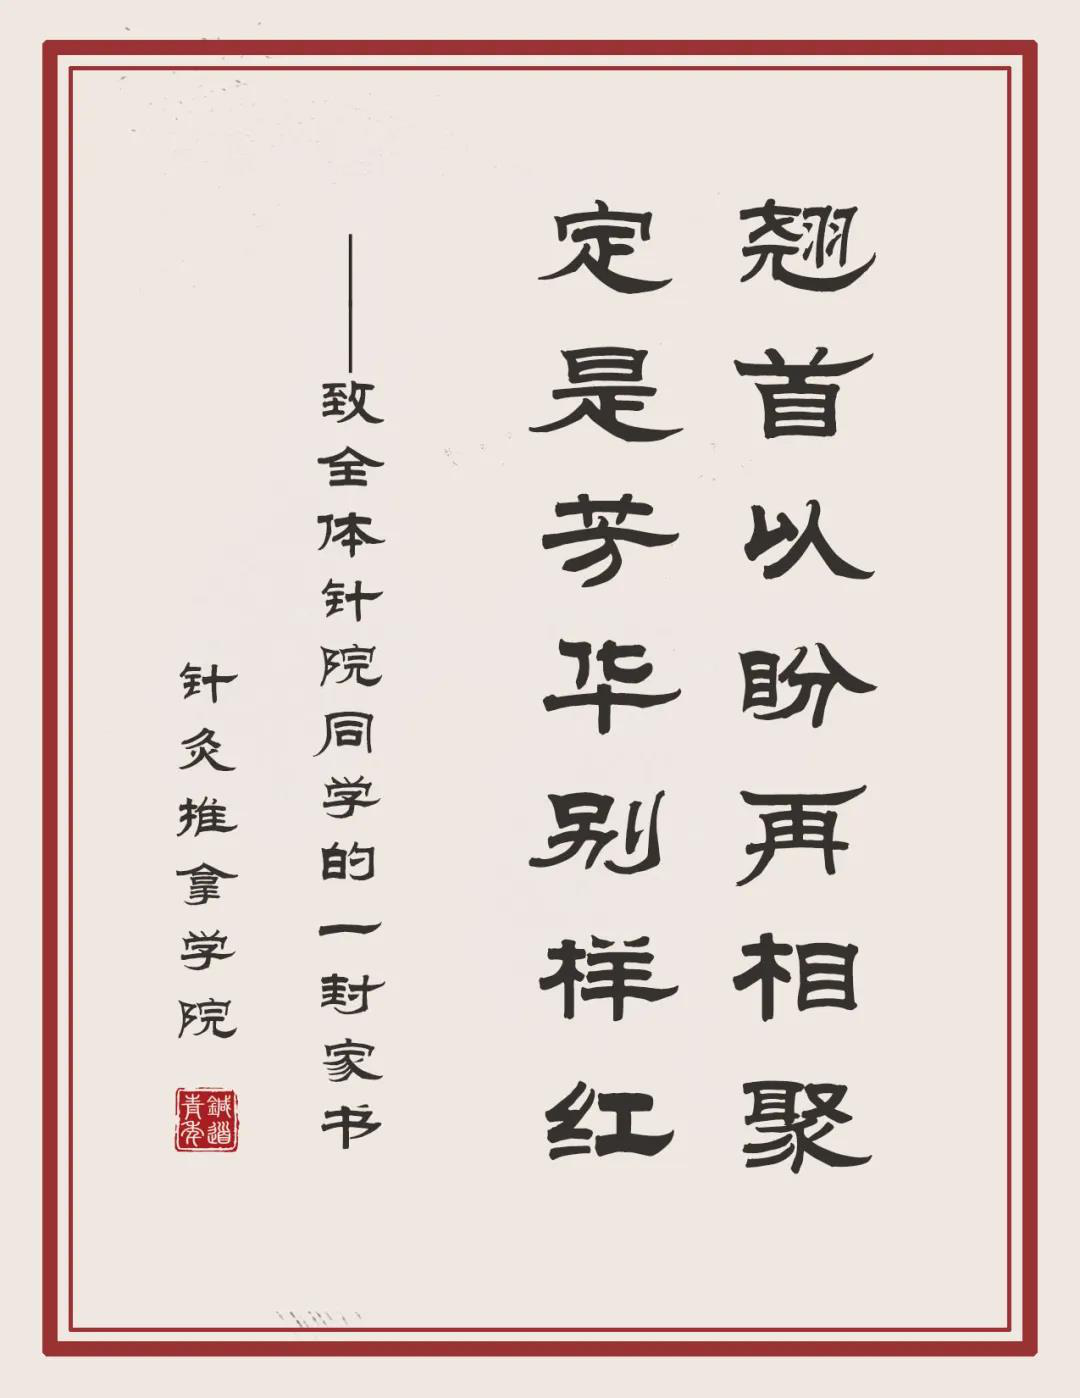 翘首以盼再相聚
定是芳华别样红
——致全体针院同学的一封家书
针灸推拿学院
鍼道
青年